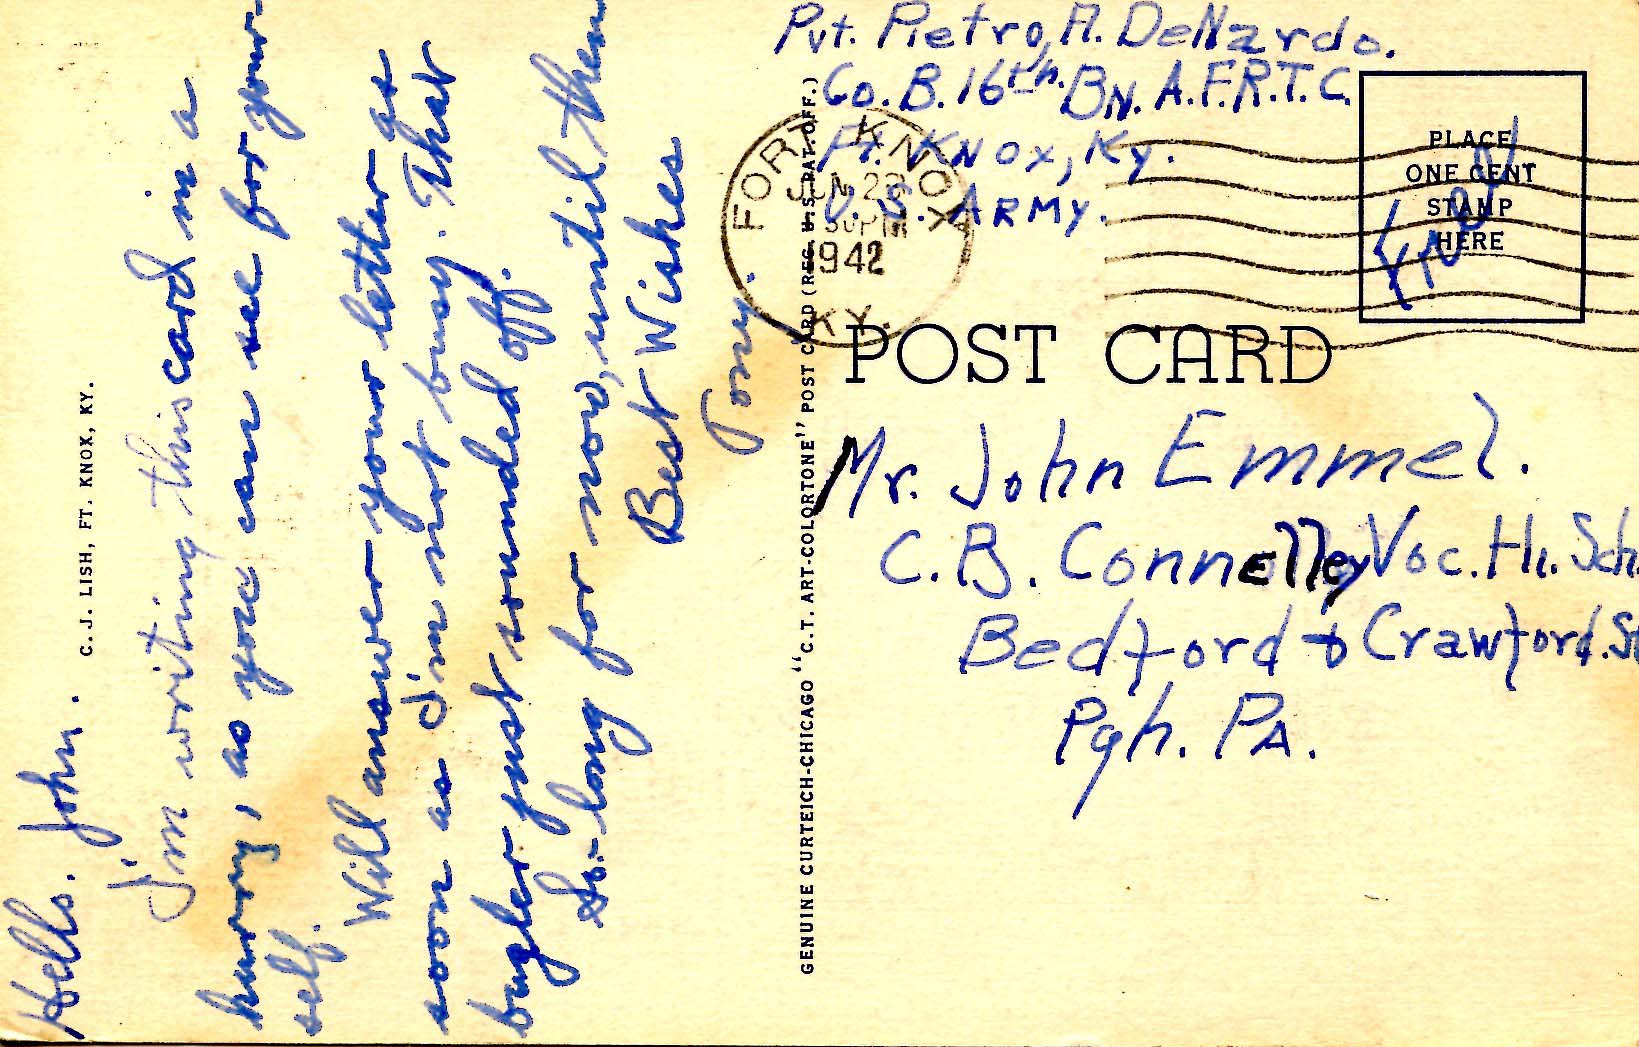 Hello. John.
I'm writing this card in a
hurry, as you can see for your-
self.
Will answer your letter as
soon as I'm not busy. That
bugler just sounded off.
So-long for now, until then
Best Wishes
Tony.
C. J. LISH, FT. KNOX, KY.
GENUINE CURTEICH-CHICAGO "C.T. ART-COLORTONE" POST CARD (REG. U.S. PAT. OFF.)
Pvt. Pietro, A. DeNardo.
Co. B. 16th. BN. A.F.R.T.C.
Ft. Knox, Ky.
U.S. ARMY.
FORT KNOX
JUN 23
PM
1942
KY.
PLACE
ONE CENT
STAMP
HERE
Free
POST CARD
Mr. John Emmel.
C.B. Connelley Voc. Hi. Sch.
Bedford & Crawford. St
Pgh. PA.